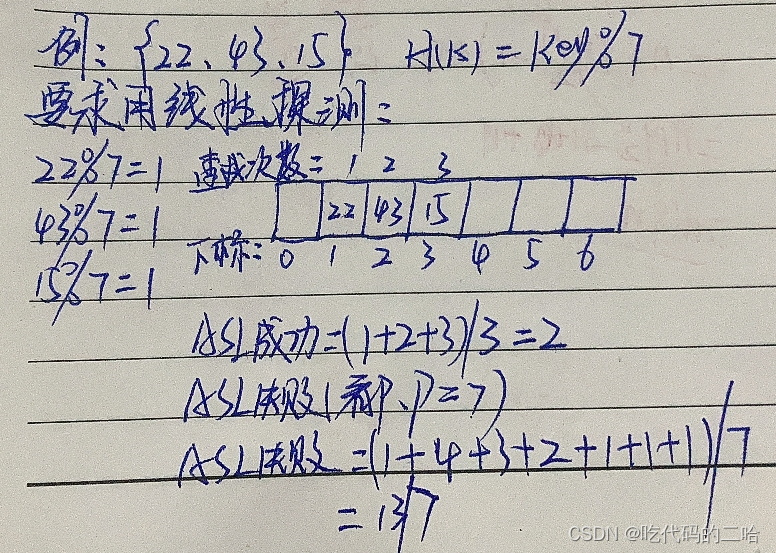 例：{22、43、15} H(K) = Key%7
要求用线性探测：
22%7=1 查找次数= 1 2 3
43%7=1 22 43 15
15%7=1 下标：0 1 2 3 4 5 6
ASL成功=(1+2+3)/3=2
ASL失败(看P、P=7)
ASL失败=(1+4+3+2+1+1+1)/7
=13/7
CSDN @吃代码的二哈